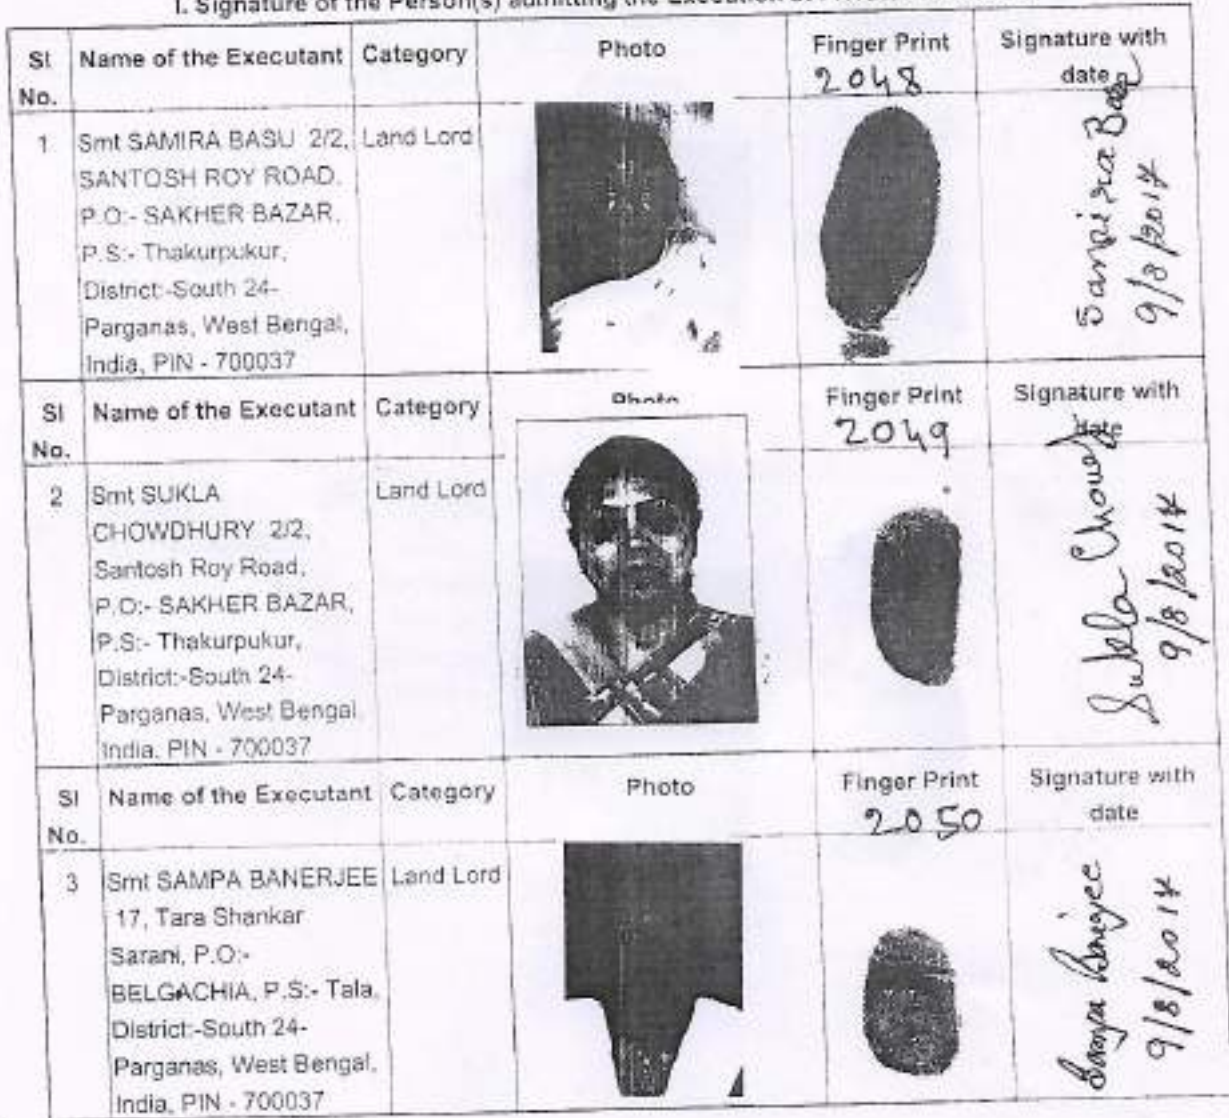 I. Signature of the Person(s) admitting the Execution
Sl No. Name of the Executant Category Photo Finger Print Signature with date
2048
1 Smt SAMIRA BASU 2/2, Land Lord
SANTOSH ROY ROAD,
P.O:- SAKHER BAZAR,
P.S:- Thakurpukur,
District:-South 24-
Parganas, West Bengal,
India, PIN - 700037
Samira Basu
9/8/2017
Sl No. Name of the Executant Category Photo Finger Print Signature with date
2049
2 Smt SUKLA Land Lord
CHOWDHURY 2/2,
Santosh Roy Road,
P.O:- SAKHER BAZAR,
P.S:- Thakurpukur,
District:-South 24-
Parganas, West Bengal,
India, PIN - 700037
Sukla
9/8/2017
Sl No. Name of the Executant Category Photo Finger Print Signature with date
2050
3 Smt SAMPA BANERJEE Land Lord
17, Tara Shankar
Sarani, P.O:-
BELGACHIA, P.S:- Tala,
District:-South 24-
Parganas, West Bengal,
India, PIN - 700037
Sampa Banerjee
9/8/2017